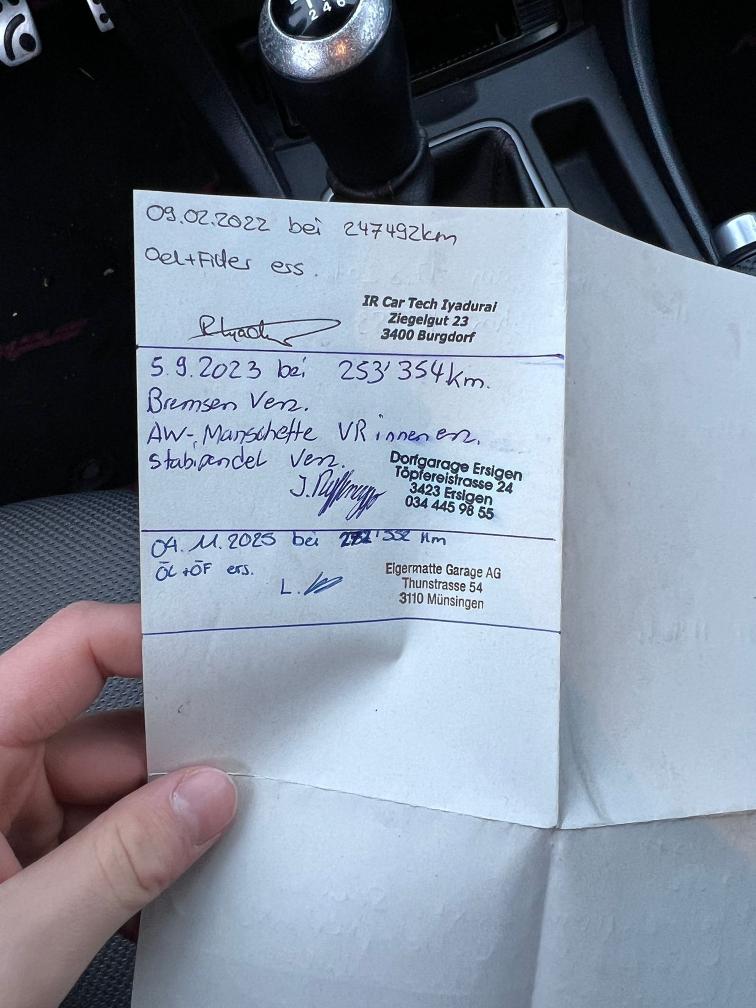 2 4 6
09.02.2022 bei 247492km
Oel+Filter ess.
IR Car Tech Iyadurai
Ziegelgut 23
3400 Burgdorf
5.9.2023 bei 253'354km.
Bremsen Verz.
AW-Manschette VR innen erz.
Stabipendel Verz.
Dorfgarage Ersigen
Töpfereistrasse 24
3423 Ersigen
034 445 98 55
04.11.2025 bei km
ÖL+ÖF ers.
L.
Elgermatte Garage AG
Thunstrasse 54
3110 Münsingen